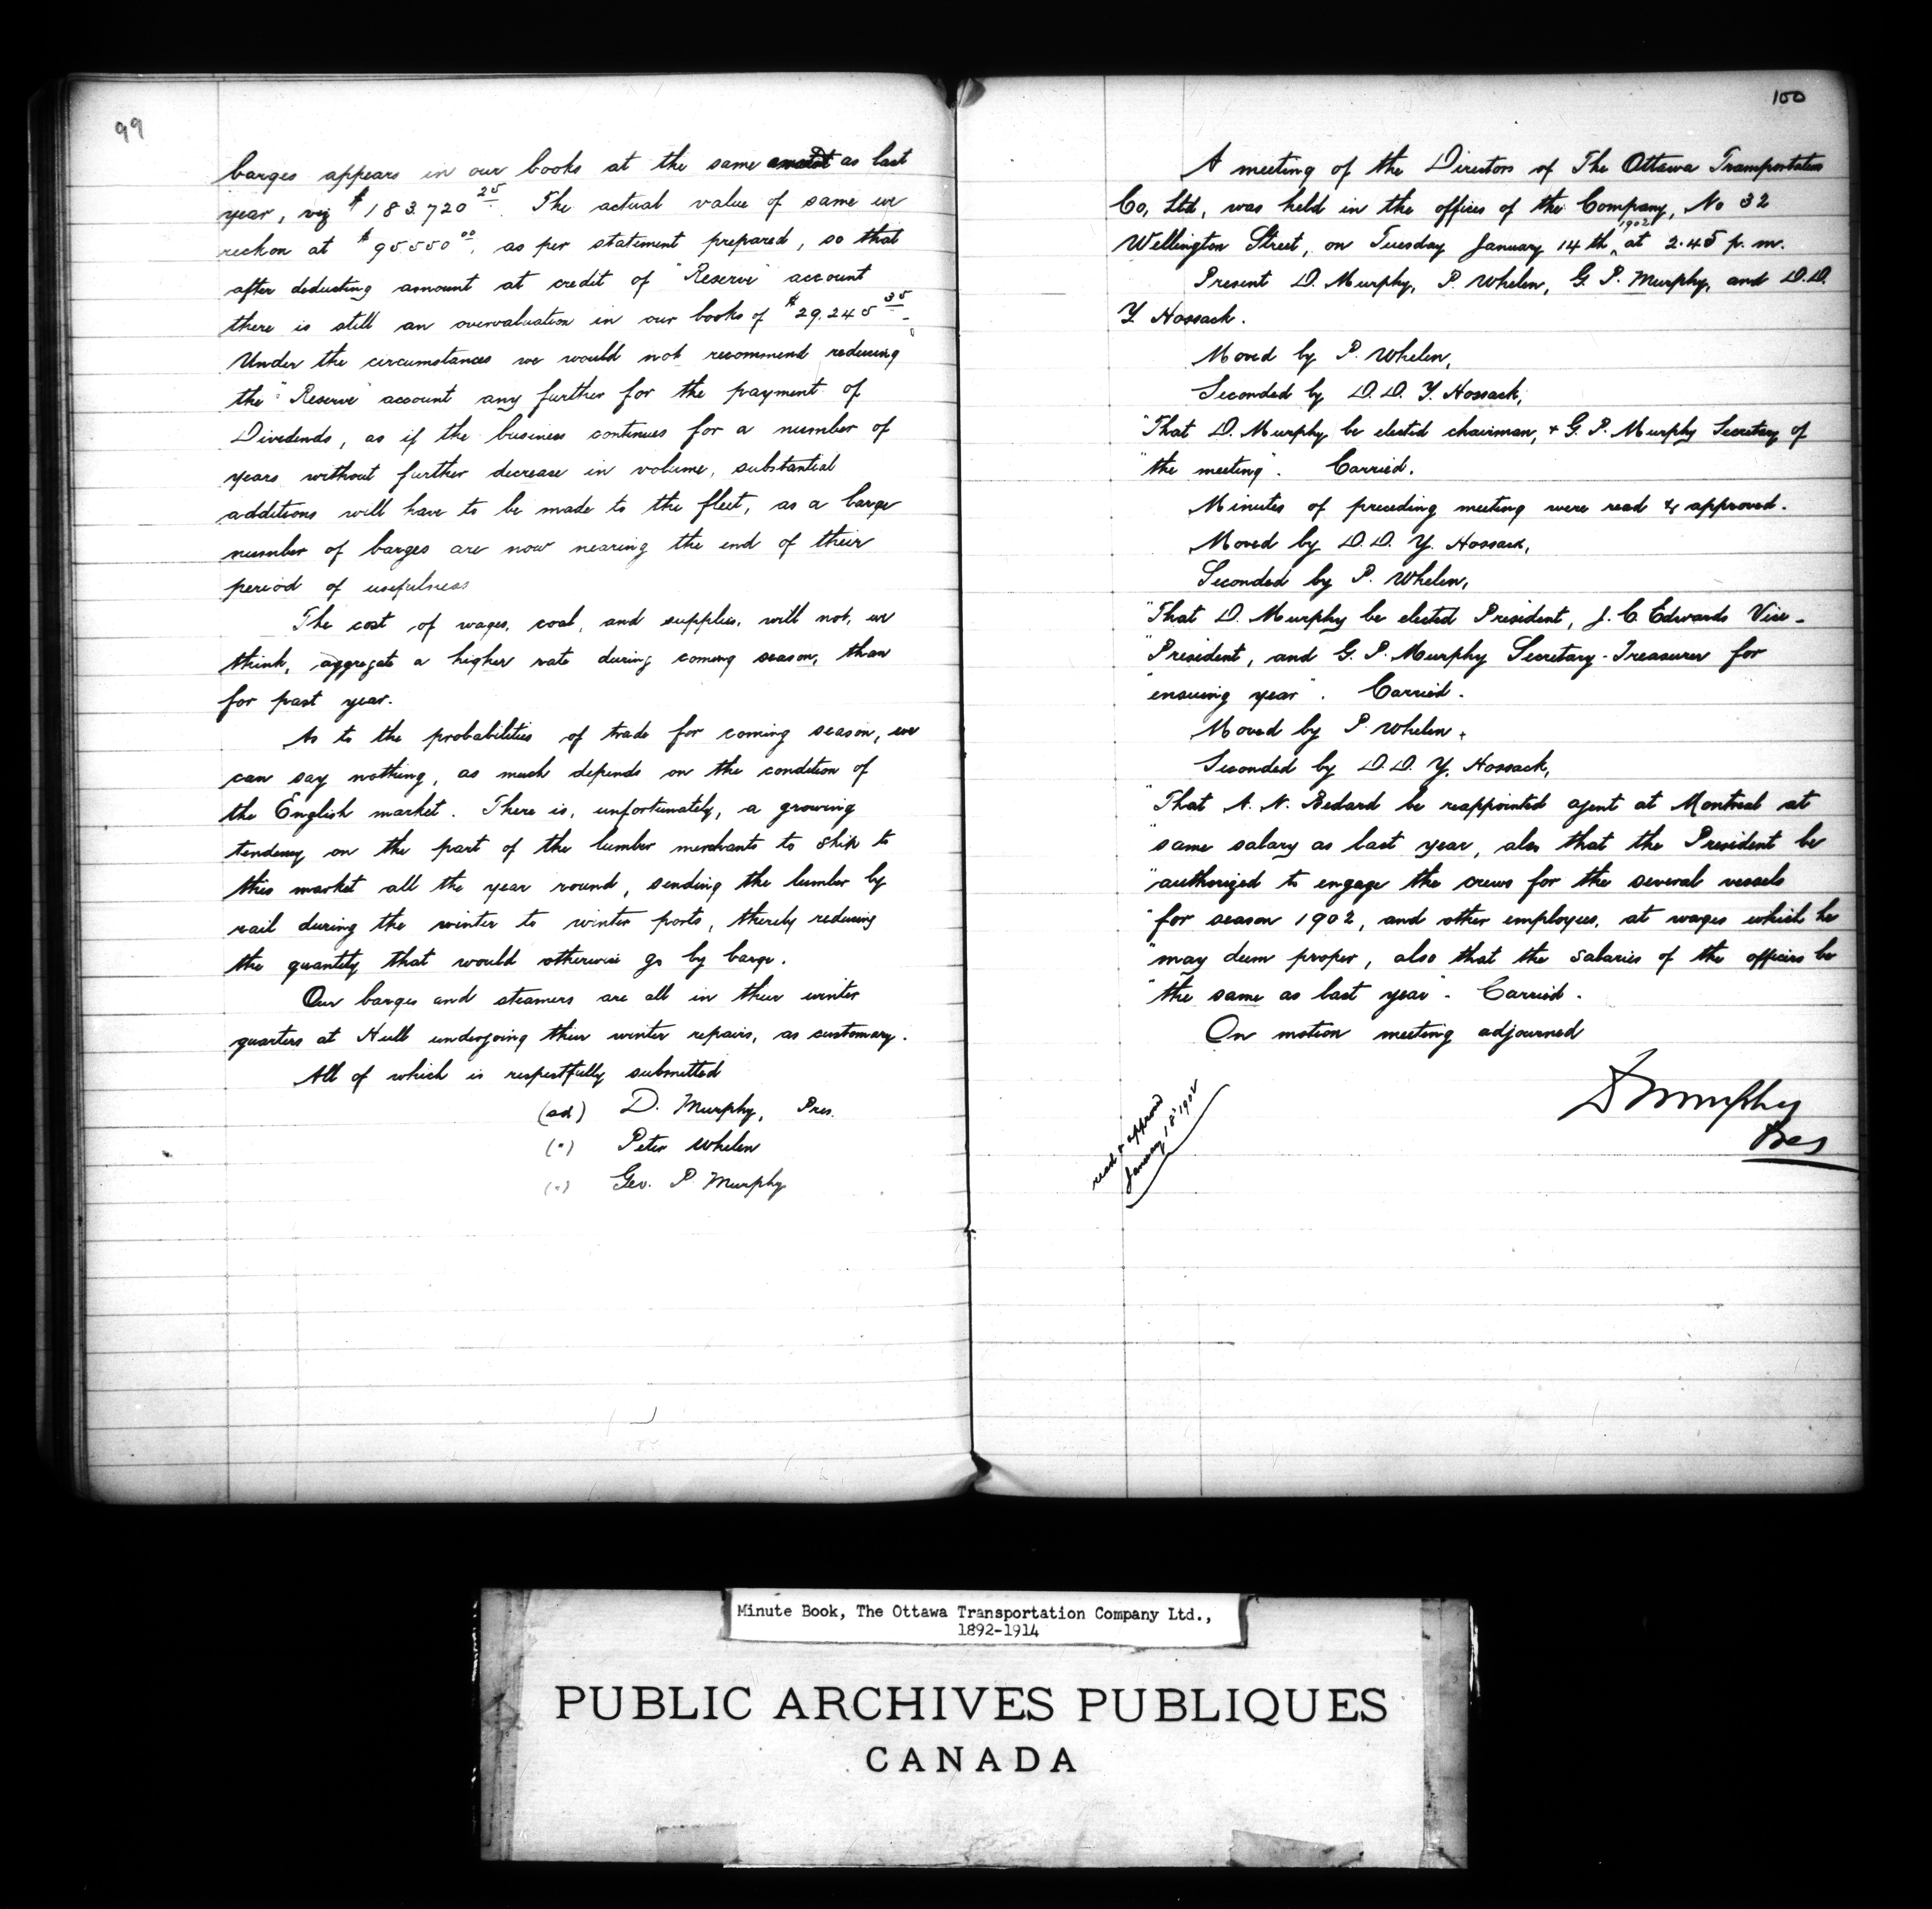 99
barges appears in our books at the same amount as last
year, viz $183.720 25. The actual value of same we
reckon at $95550 00, as per statement prepared, so that
after deducting amount at credit of "Reserve" account
there is still an overvaluation in our books of $29.245 35.
Under the circumstances we would not recommend reducing
the "Reserve" account any further for the payment of
Dividends, as if the business continues for a number of
years without further decrease in volume, substantial
additions will have to be made to the fleet, as a large
number of barges are now nearing the end of their
period of usefulness
The cost of wages, coal, and supplies, will not, we
think, aggregate a higher rate during coming season, than
for past year.
As to the probabilities of trade for coming season, we
can say nothing, as much depends on the condition of
the English market. There is, unfortunately, a growing
tendency on the part of the lumber merchants to ship to
this market all the year round, sending the lumber by
rail during the winter to winter ports, thereby reducing
the quantity that would otherwise go by barge.
Our barges and steamers are all in their winter
quarters at Hull undergoing their winter repairs, as customary.
All of which is respectfully submitted
(sd) D. Murphy, Pres.
(") Peter Whelen
(") Geo. P Murphy
100
A meeting of the Directors of The Ottawa Transportation
Co, Ltd, was held in the offices of the Company, No 32
Wellington Street, on Tuesday January 14th, 1902 at 2.45 p.m.
Present D. Murphy, P. Whelen, G. P. Murphy, and D.D.
Y Hossack.
Moved by P. Whelen,
Seconded by D. D. Y. Hossack,
"That D. Murphy be elected chairman, + G. P. Murphy Secretary of
"the meeting". Carried.
Minutes of preceding meeting were read & approved.
Moved by D. D. Y. Hossack,
Seconded by P. Whelen,
"That D. Murphy be elected President, J. C. Edwards Vice-
"President, and G. P. Murphy Secretary-Treasurer for
"ensuing year". Carried.
Moved by P. Whelen,
Seconded by D. D. Y. Hossack,
"That A. N. Bedard be reappointed agent at Montreal at
"same salary as last year, also that the President be
"authorized to engage the crews for the several vessels
"for season 1902, and other employees, at wages which he
"may deem proper, also that the salaries of the officers be
"the same as last year". Carried.
On motion meeting adjourned
D Murphy
Pres
read & approved
January 18th 1902
Minute Book, The Ottawa Transportation Company Ltd.,
1892-1914
PUBLIC ARCHIVES PUBLIQUES
CANADA